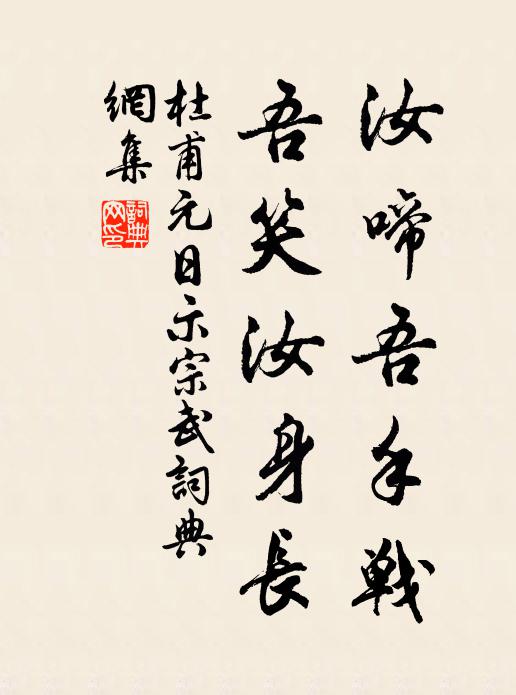 汝啼吾手戰
吾笑汝身長
杜甫元日示宗武詞典
網集
詞典網印